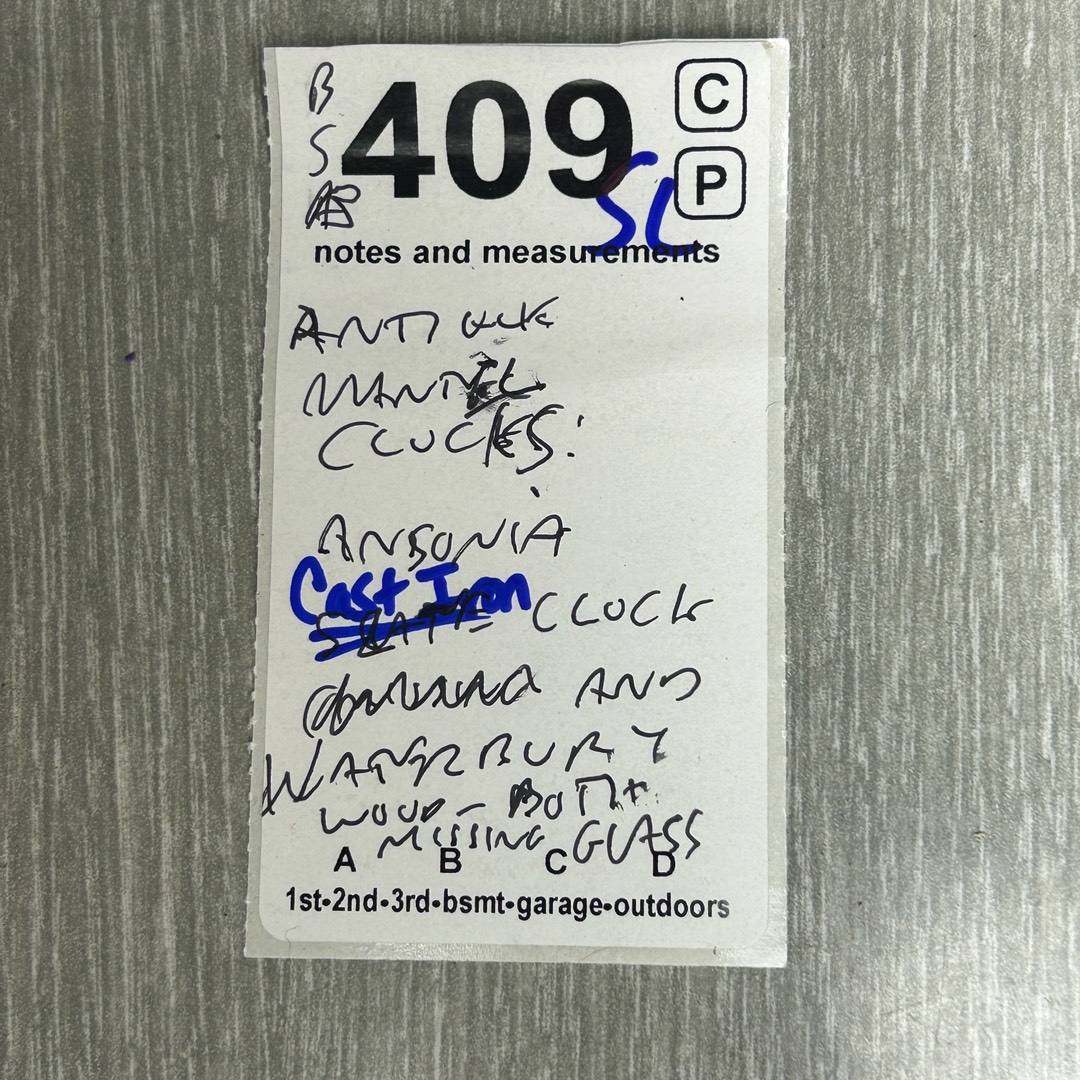 B
409
C
S
SL
P
notes and measurements
ANTIQUE
MANTEL
CLOCKS:
ANSONIA
Cast Iron
SLATE CLOCK
AND
WATERBURY
WOOD - BOTH
MISSING GLASS
A B C D
1st•2nd•3rd•bsmt•garage•outdoors